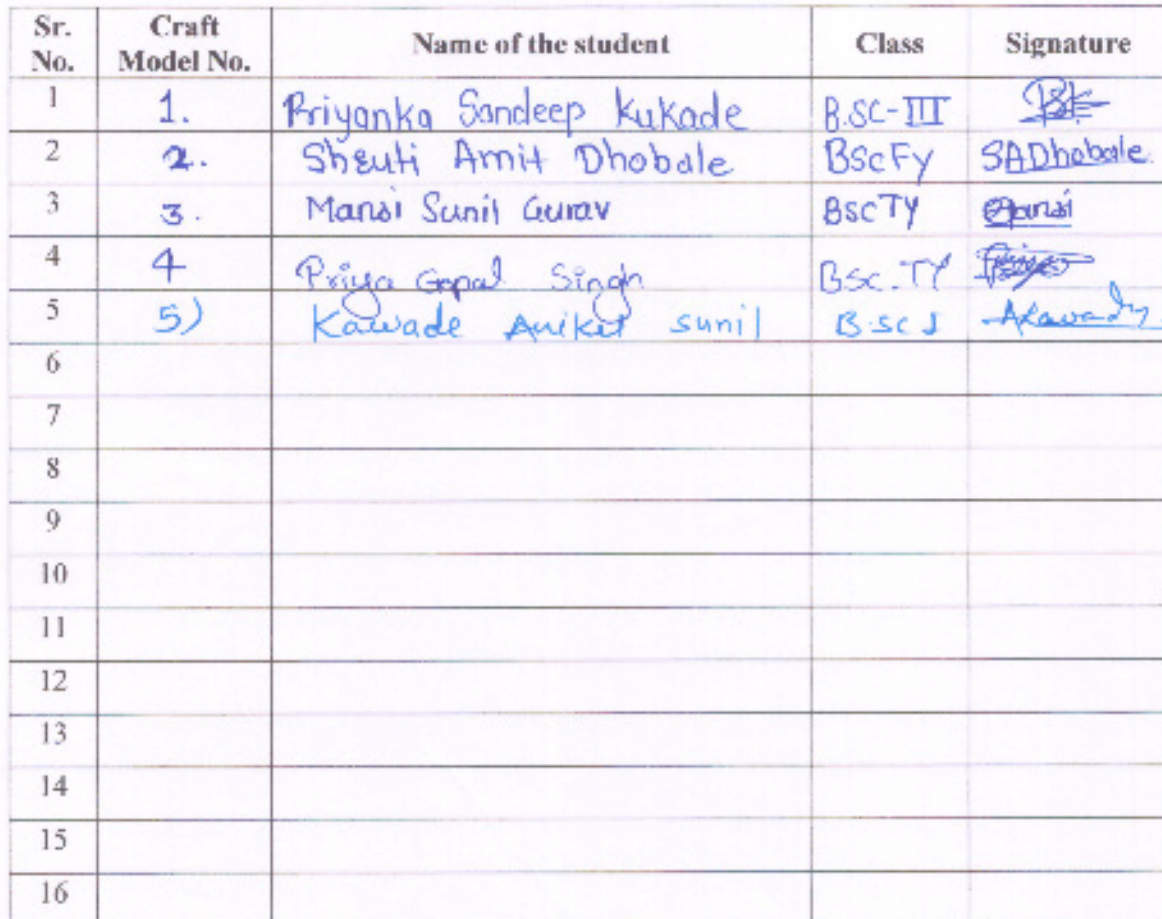 Sr. No. Craft Model No. Name of the student Class Signature
1 1. Priyanka Sandeep Kukade B.SC-III
2 2. Shruti Amit Dhobale BScFy SADhobale
3 3. Mansi Sunil Gurav BscTY Mansi
4 4 Priya Gopal Singh BSc.TY
5 5) Kawade Aniket sunil B.sc I
6
7
8
9
10
11
12
13
14
15
16